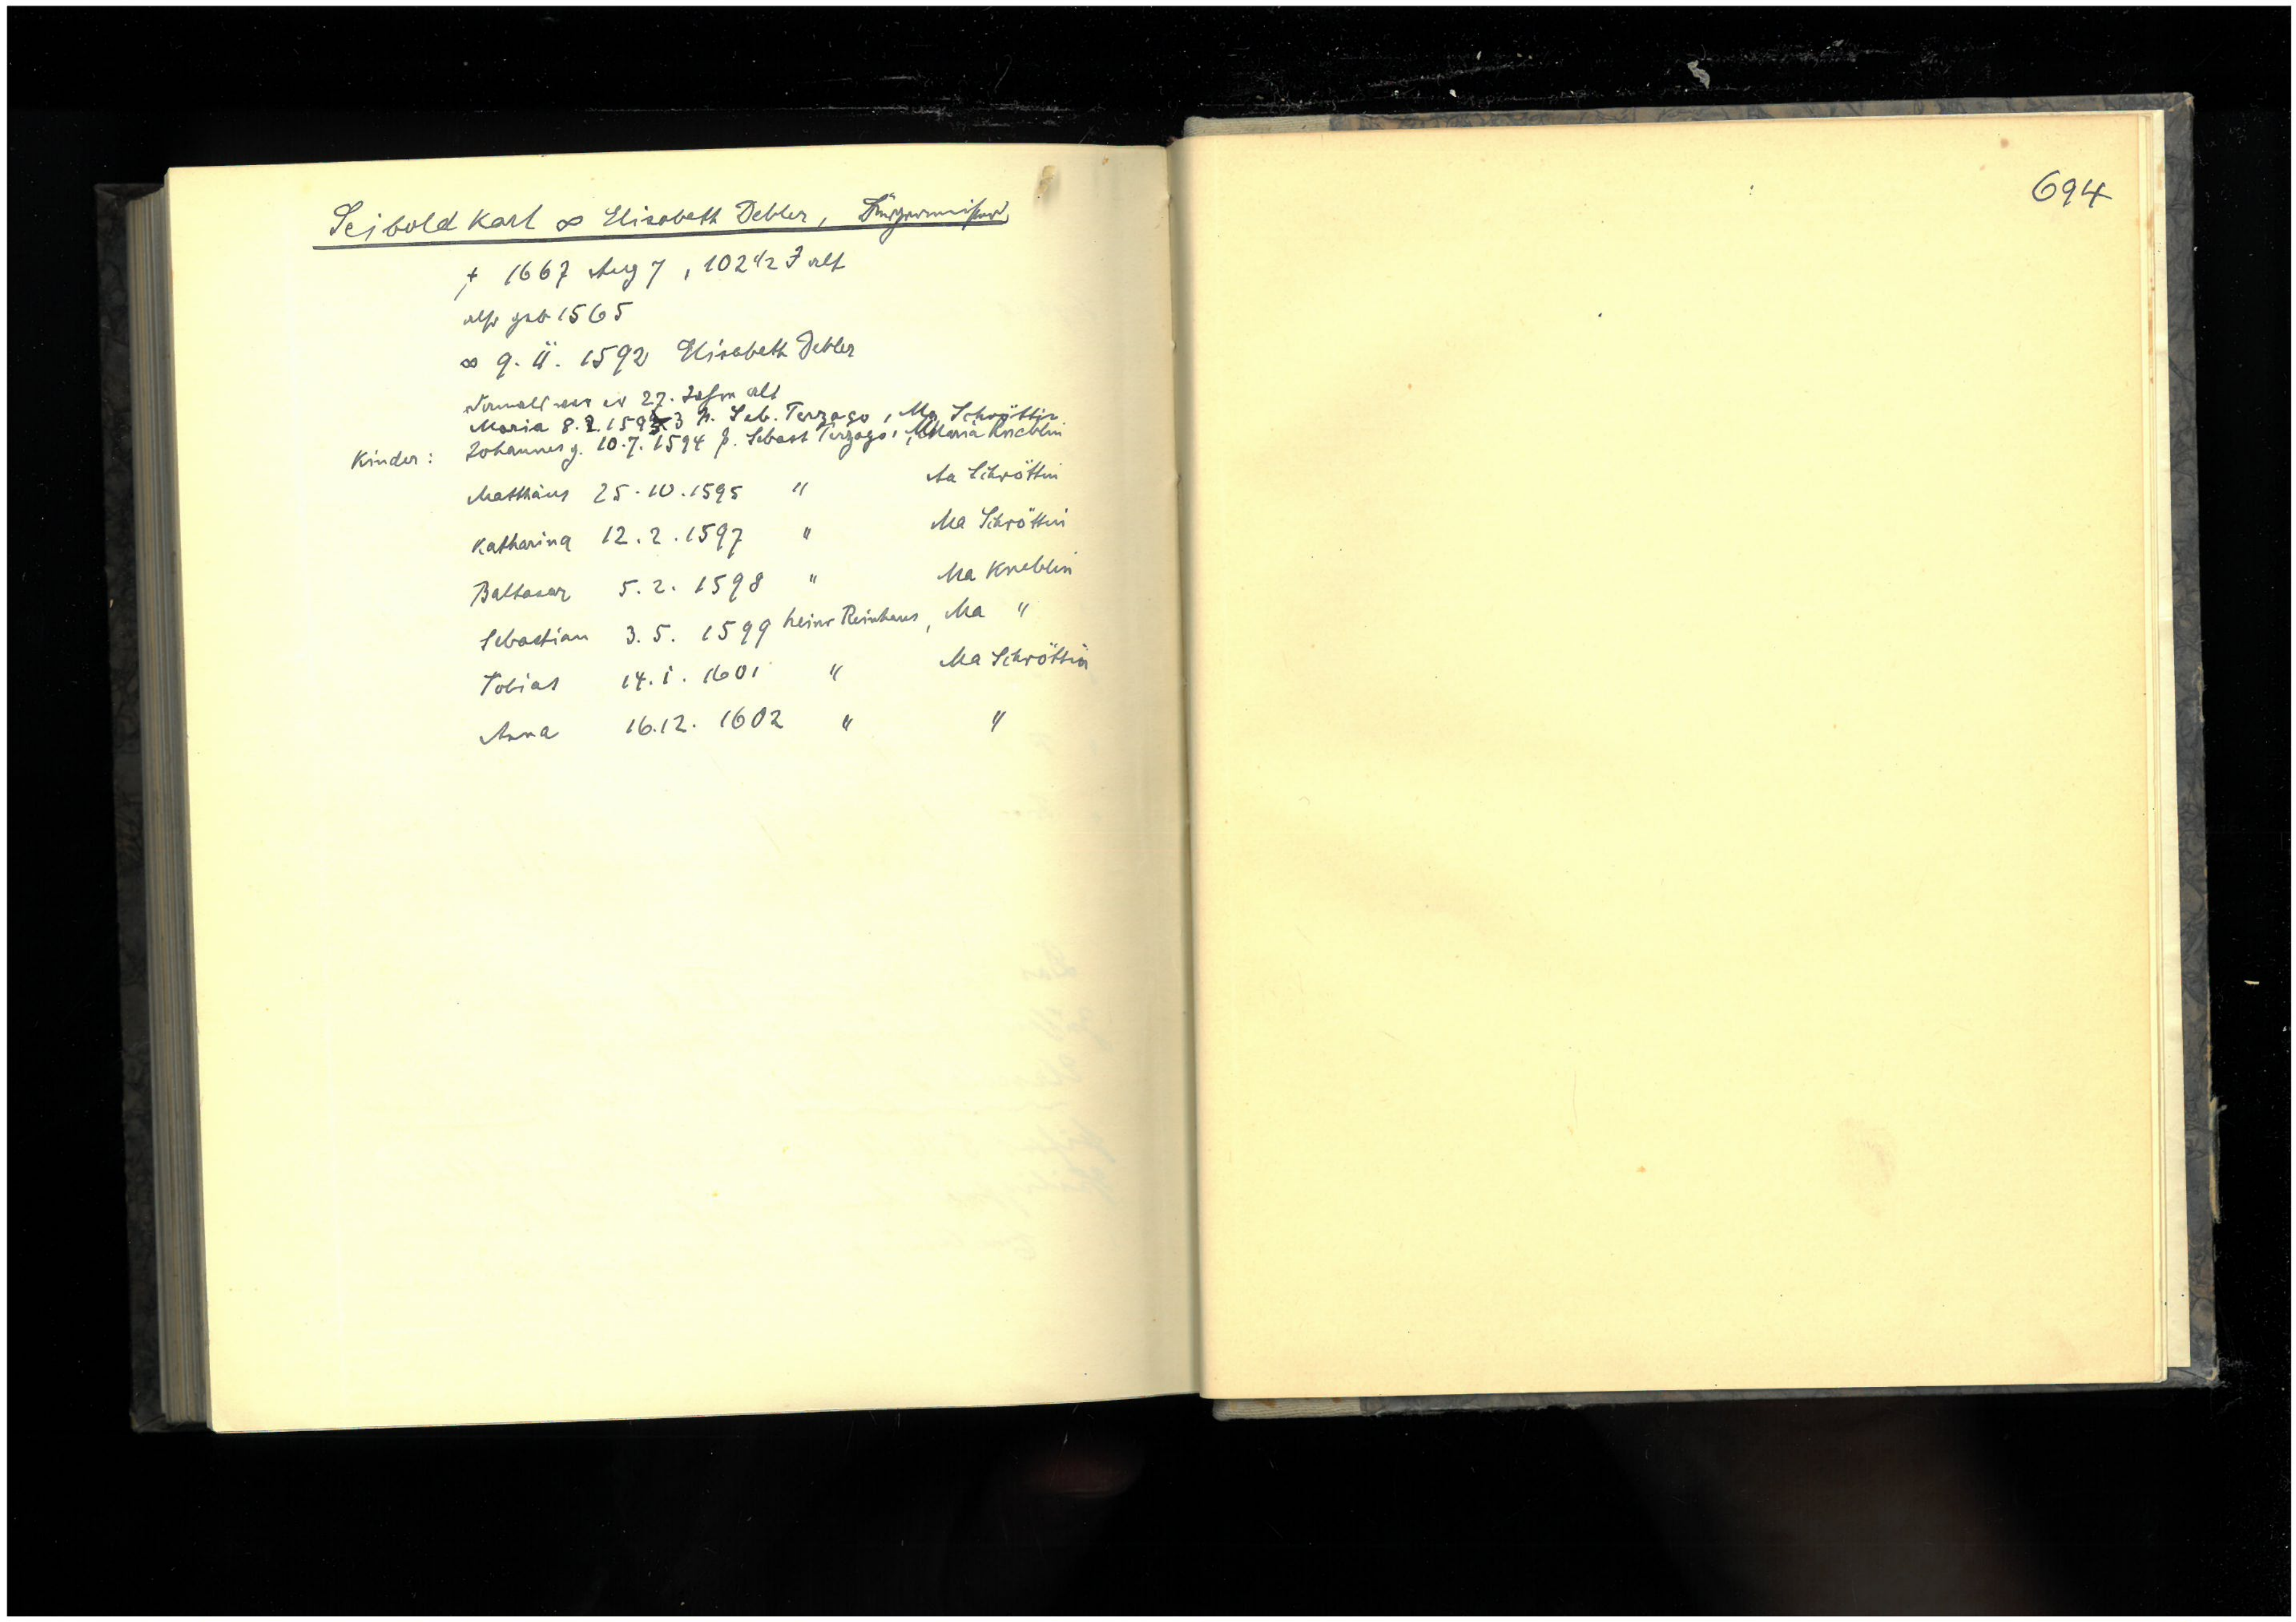 Seibold Karl ∞ Elisabeth Debler, Bürgermeister
† 1667 Aug 7, 102 1/2 J alt
also geb 1565
∞ 9. II. 1592 Elisabeth Debler
Damals war er 27. Jahre alt
Maria 8.2.1593 P. Seb. Terzago, Ma Schröttin
Kinder: Johannes g. 10.7.1594 p. Sebast Terzago, Maria Kneblin
Matthäus 25.10.1595 " Aa Schröttin
Katharina 12.2.1597 " Ma Schröttin
Baltasar 5.2.1598 " Ma Kneblin
Sebastian 3.5.1599 Heinr , Ma "
Tobias 14.1.1601 " Ma Schröttin
Anna 16.12.1602 " "
694